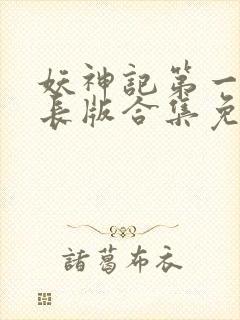 妖神記第一
長版合集免
諸葛布衣